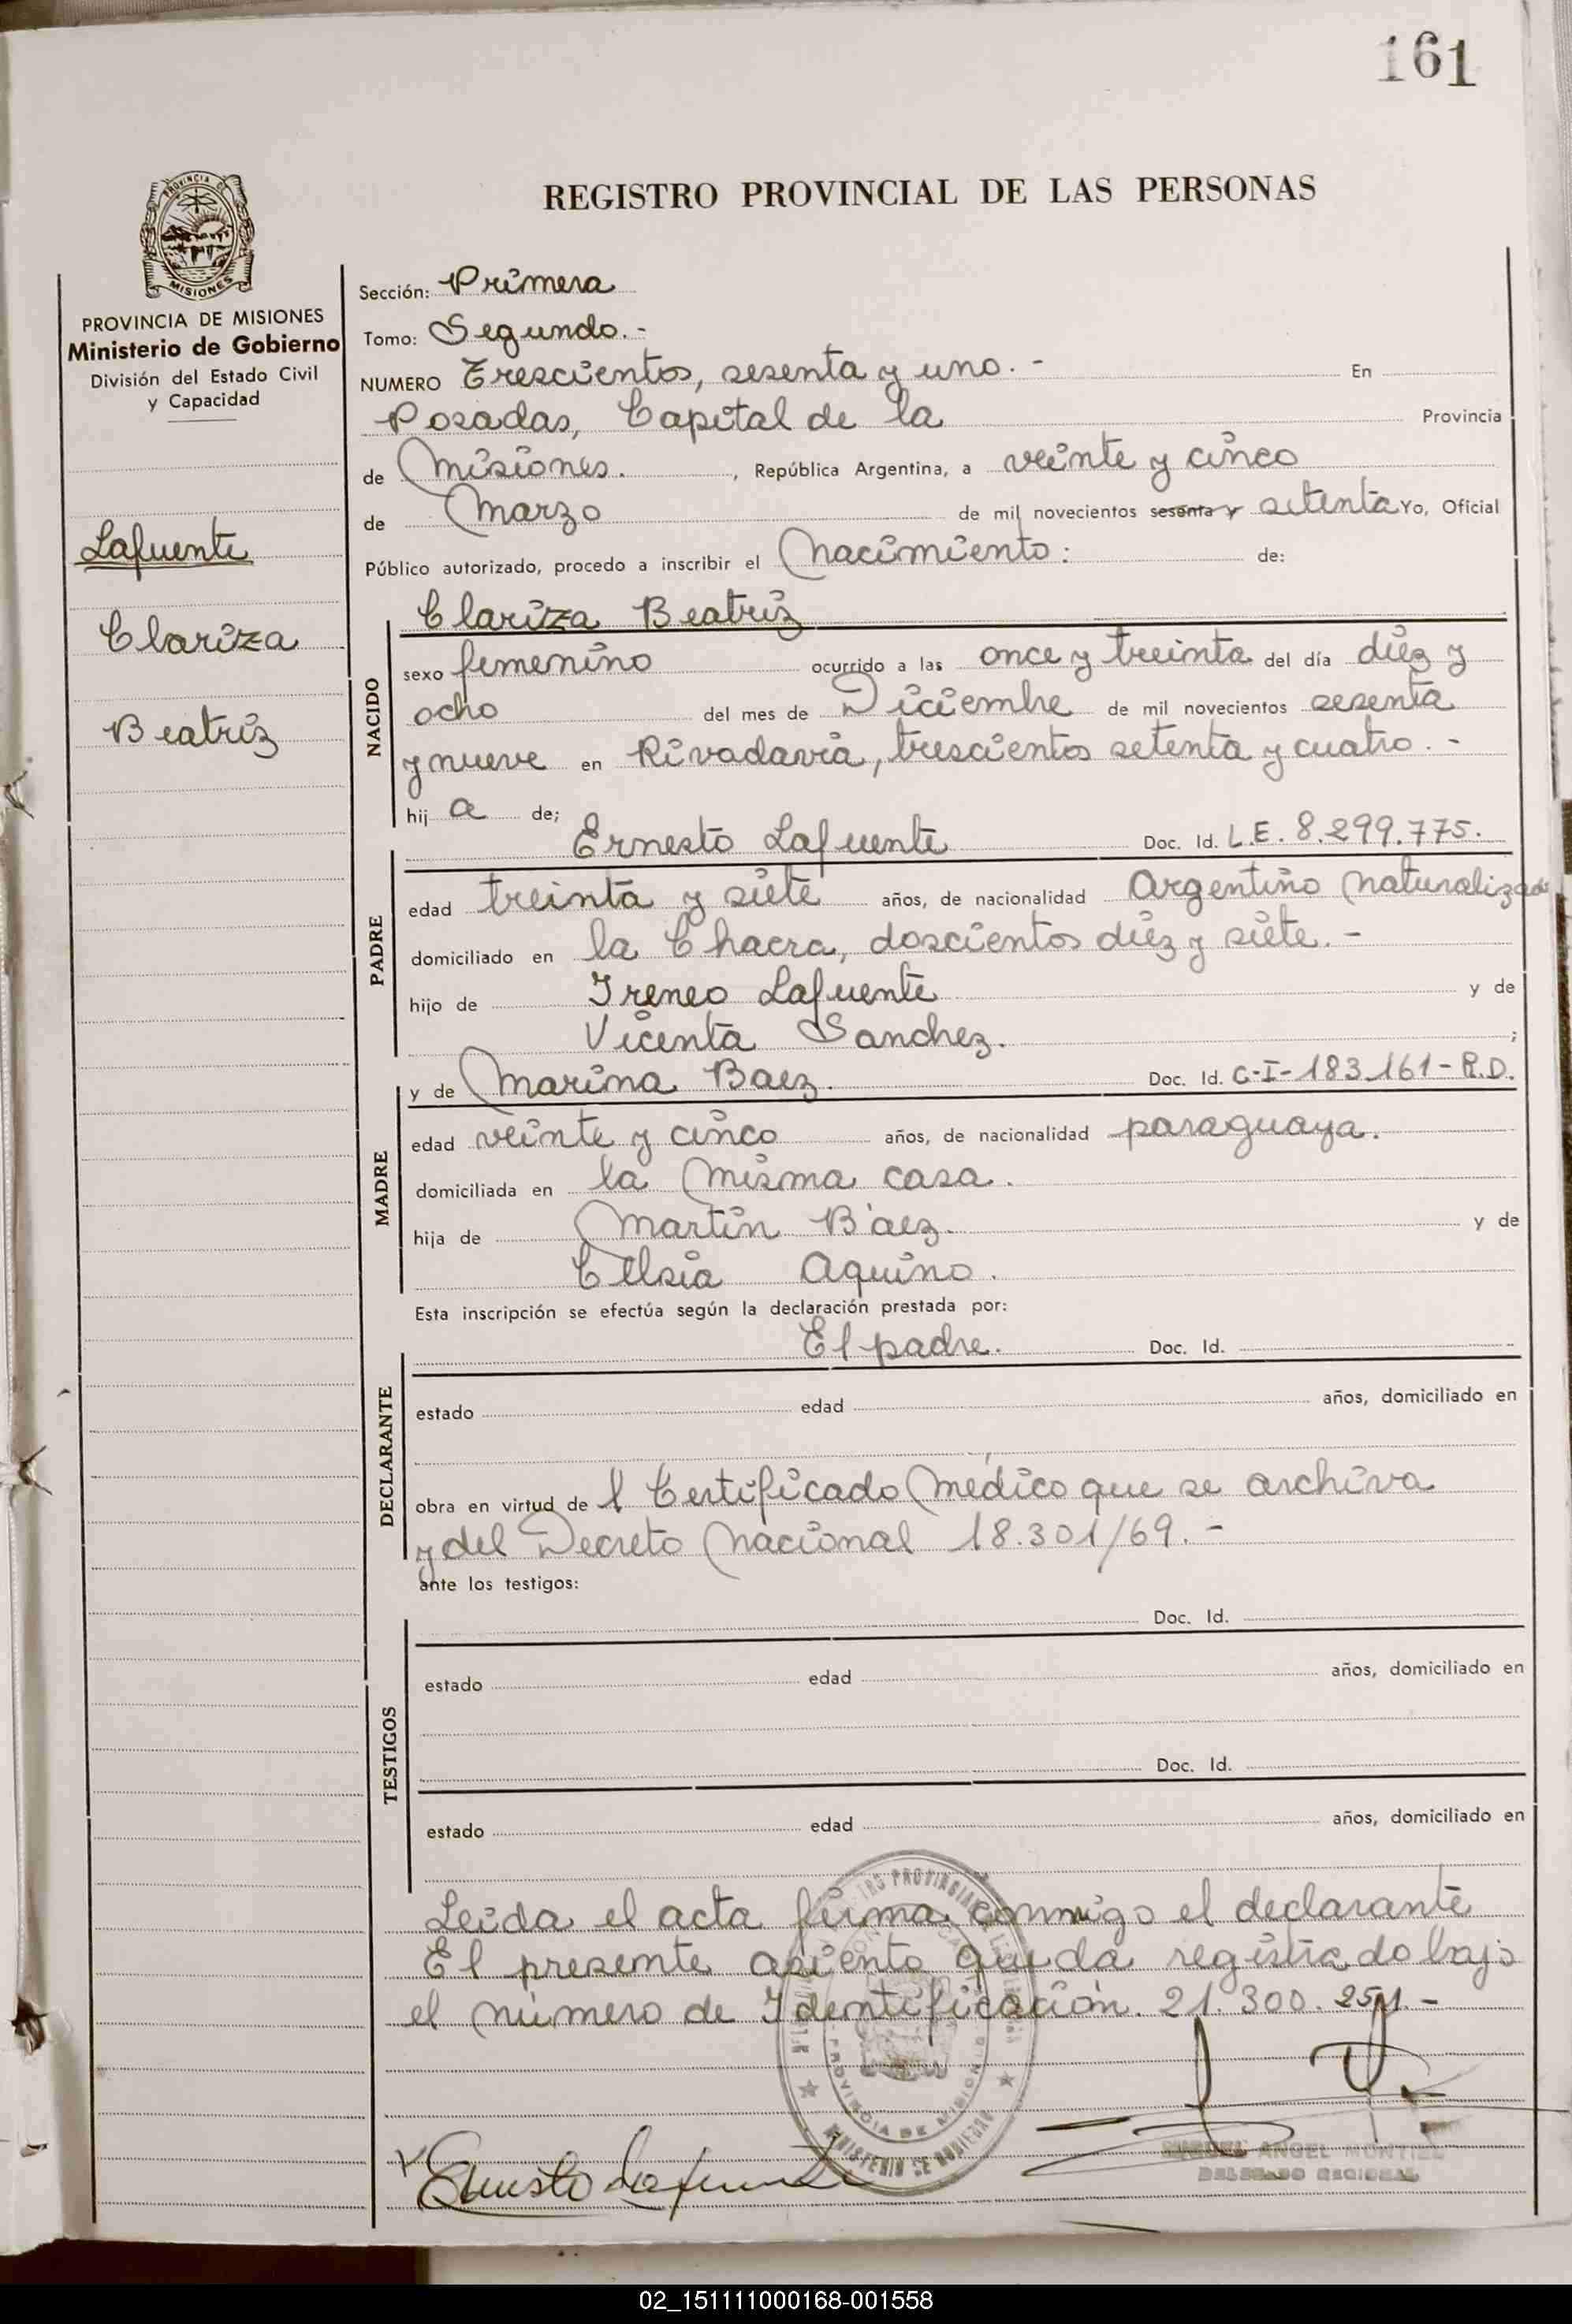 161
REGISTRO PROVINCIAL DE LAS PERSONAS
MISIONES
PROVINCIA DE MISIONES
Ministerio de Gobierno
División del Estado Civil
y Capacidad
Lafuente
Clariza
Beatriz
Sección: Primera
Tomo: Segundo.-
NUMERO Trescientos, sesenta y uno.- En
Posadas, Capital de la Provincia
de Misiones. , República Argentina, a veinte y cinco
de Marzo de mil novecientos sesenta y setenta Yo, Oficial
Público autorizado, procedo a inscribir el Nacimiento: de:
NACIDO
Clariza Beatriz
sexo femenino ocurrido a las once y treinta del día diez y
ocho del mes de Diciembre de mil novecientos sesenta
y nueve en Rivadavia, trescientos setenta y cuatro.-
hij a de;
PADRE
Ernesto Lafuente Doc. Id. L.E. 8.299.775.
edad treinta y siete años, de nacionalidad Argentino Naturalizado
domiciliado en la Chacra, doscientos diez y siete.-
hijo de Ireneo Lafuente y de
Vicenta Sanchez. ;
MADRE
y de Marina Baez. Doc. Id. C-I-183.161-P.D.
edad veinte y cinco años, de nacionalidad paraguaya.
domiciliada en la misma casa.
hija de Martín Báez. y de
Celsia Aquino.
Esta inscripción se efectúa según la declaración prestada por:
DECLARANTE
El padre. Doc. Id.
estado edad años, domiciliado en
obra en virtud de l Certificado Médico que se archiva
y del Decreto Nacional 18.301/69.-
ante los testigos:
TESTIGOS
Doc. Id.
estado edad años, domiciliado en
Doc. Id.
estado edad años, domiciliado en
Leída el acta firma conmigo el declarante
El presente asiento queda registrado bajo
el número de Identificación. 21.300.251.-
PROVINCIA DE MISIONES
MINISTERIO DE GOBIERNO
Ernesto Lafuente
ANGEL MONTIEL
DELEGADO REGIONAL
02_151111000168-001558